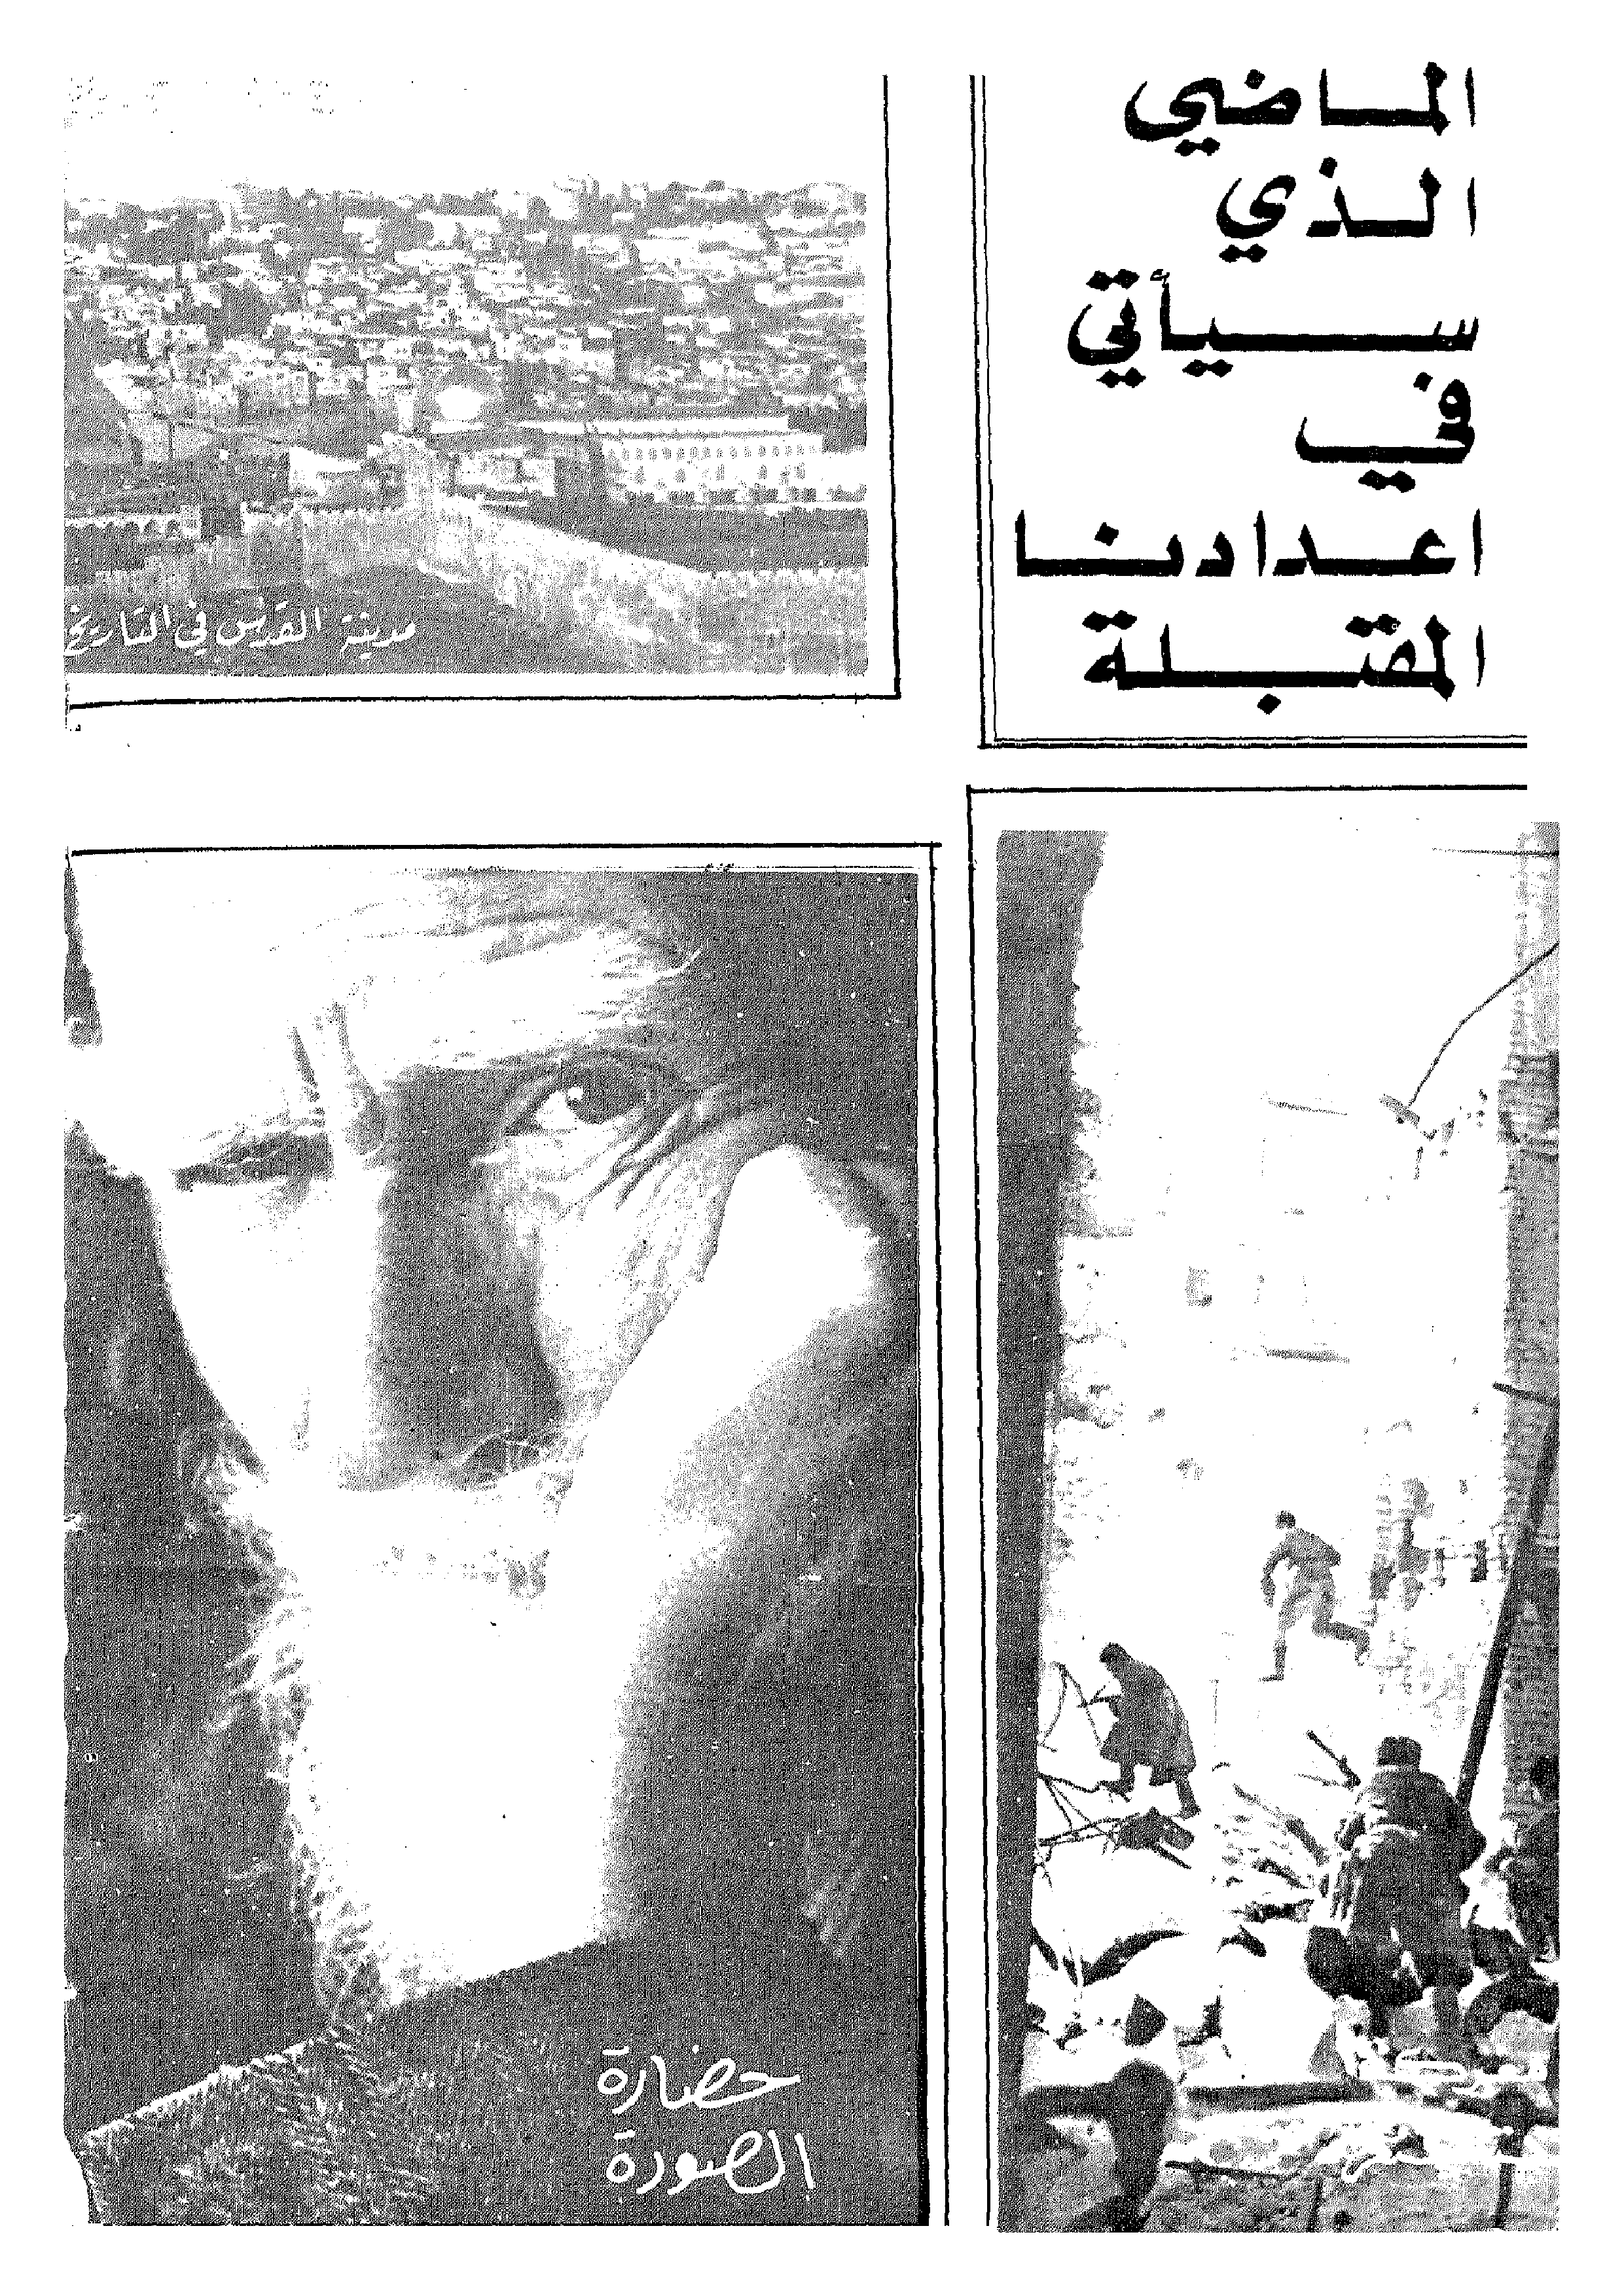 الماضي
الذي
سيأتي
في
اعدادنا
المقبلة
مدينة القدس في التاريخ
حضارة
الصورة